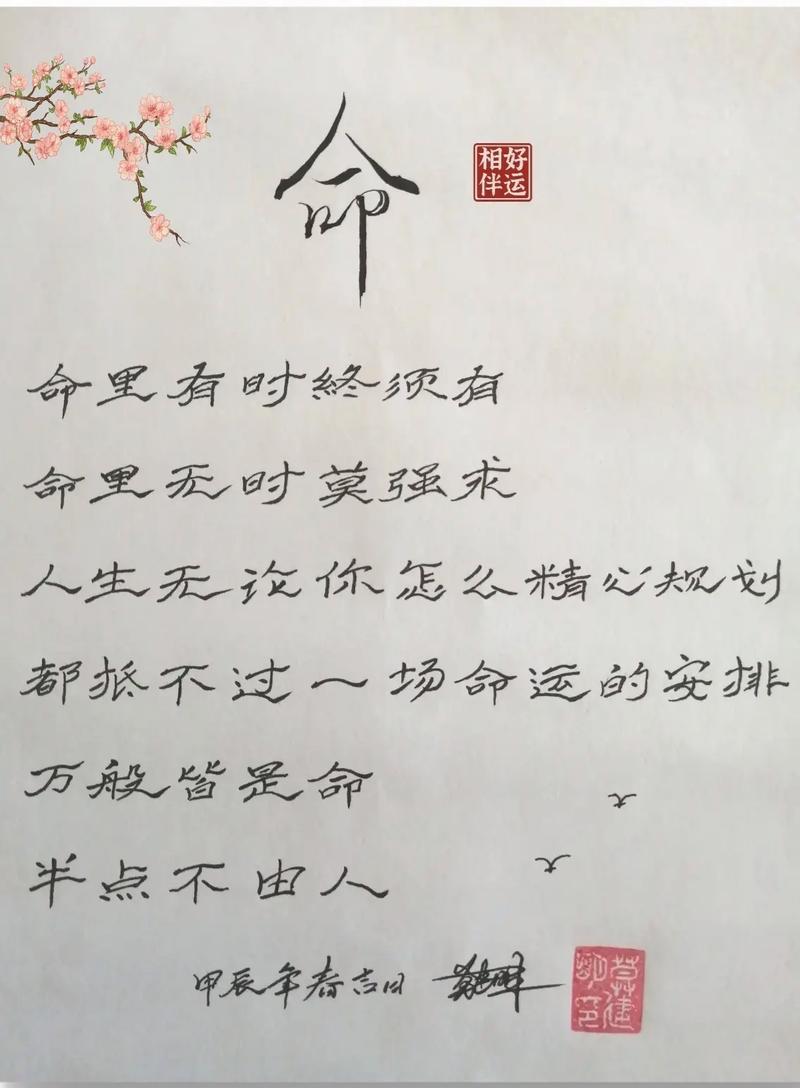 命
好运
相伴
命里有时終须有
命里无时莫强求
人生无论你怎么精心规划
都抵不过一场命运的安排
万般皆是命
半点不由人
甲辰年春吉日